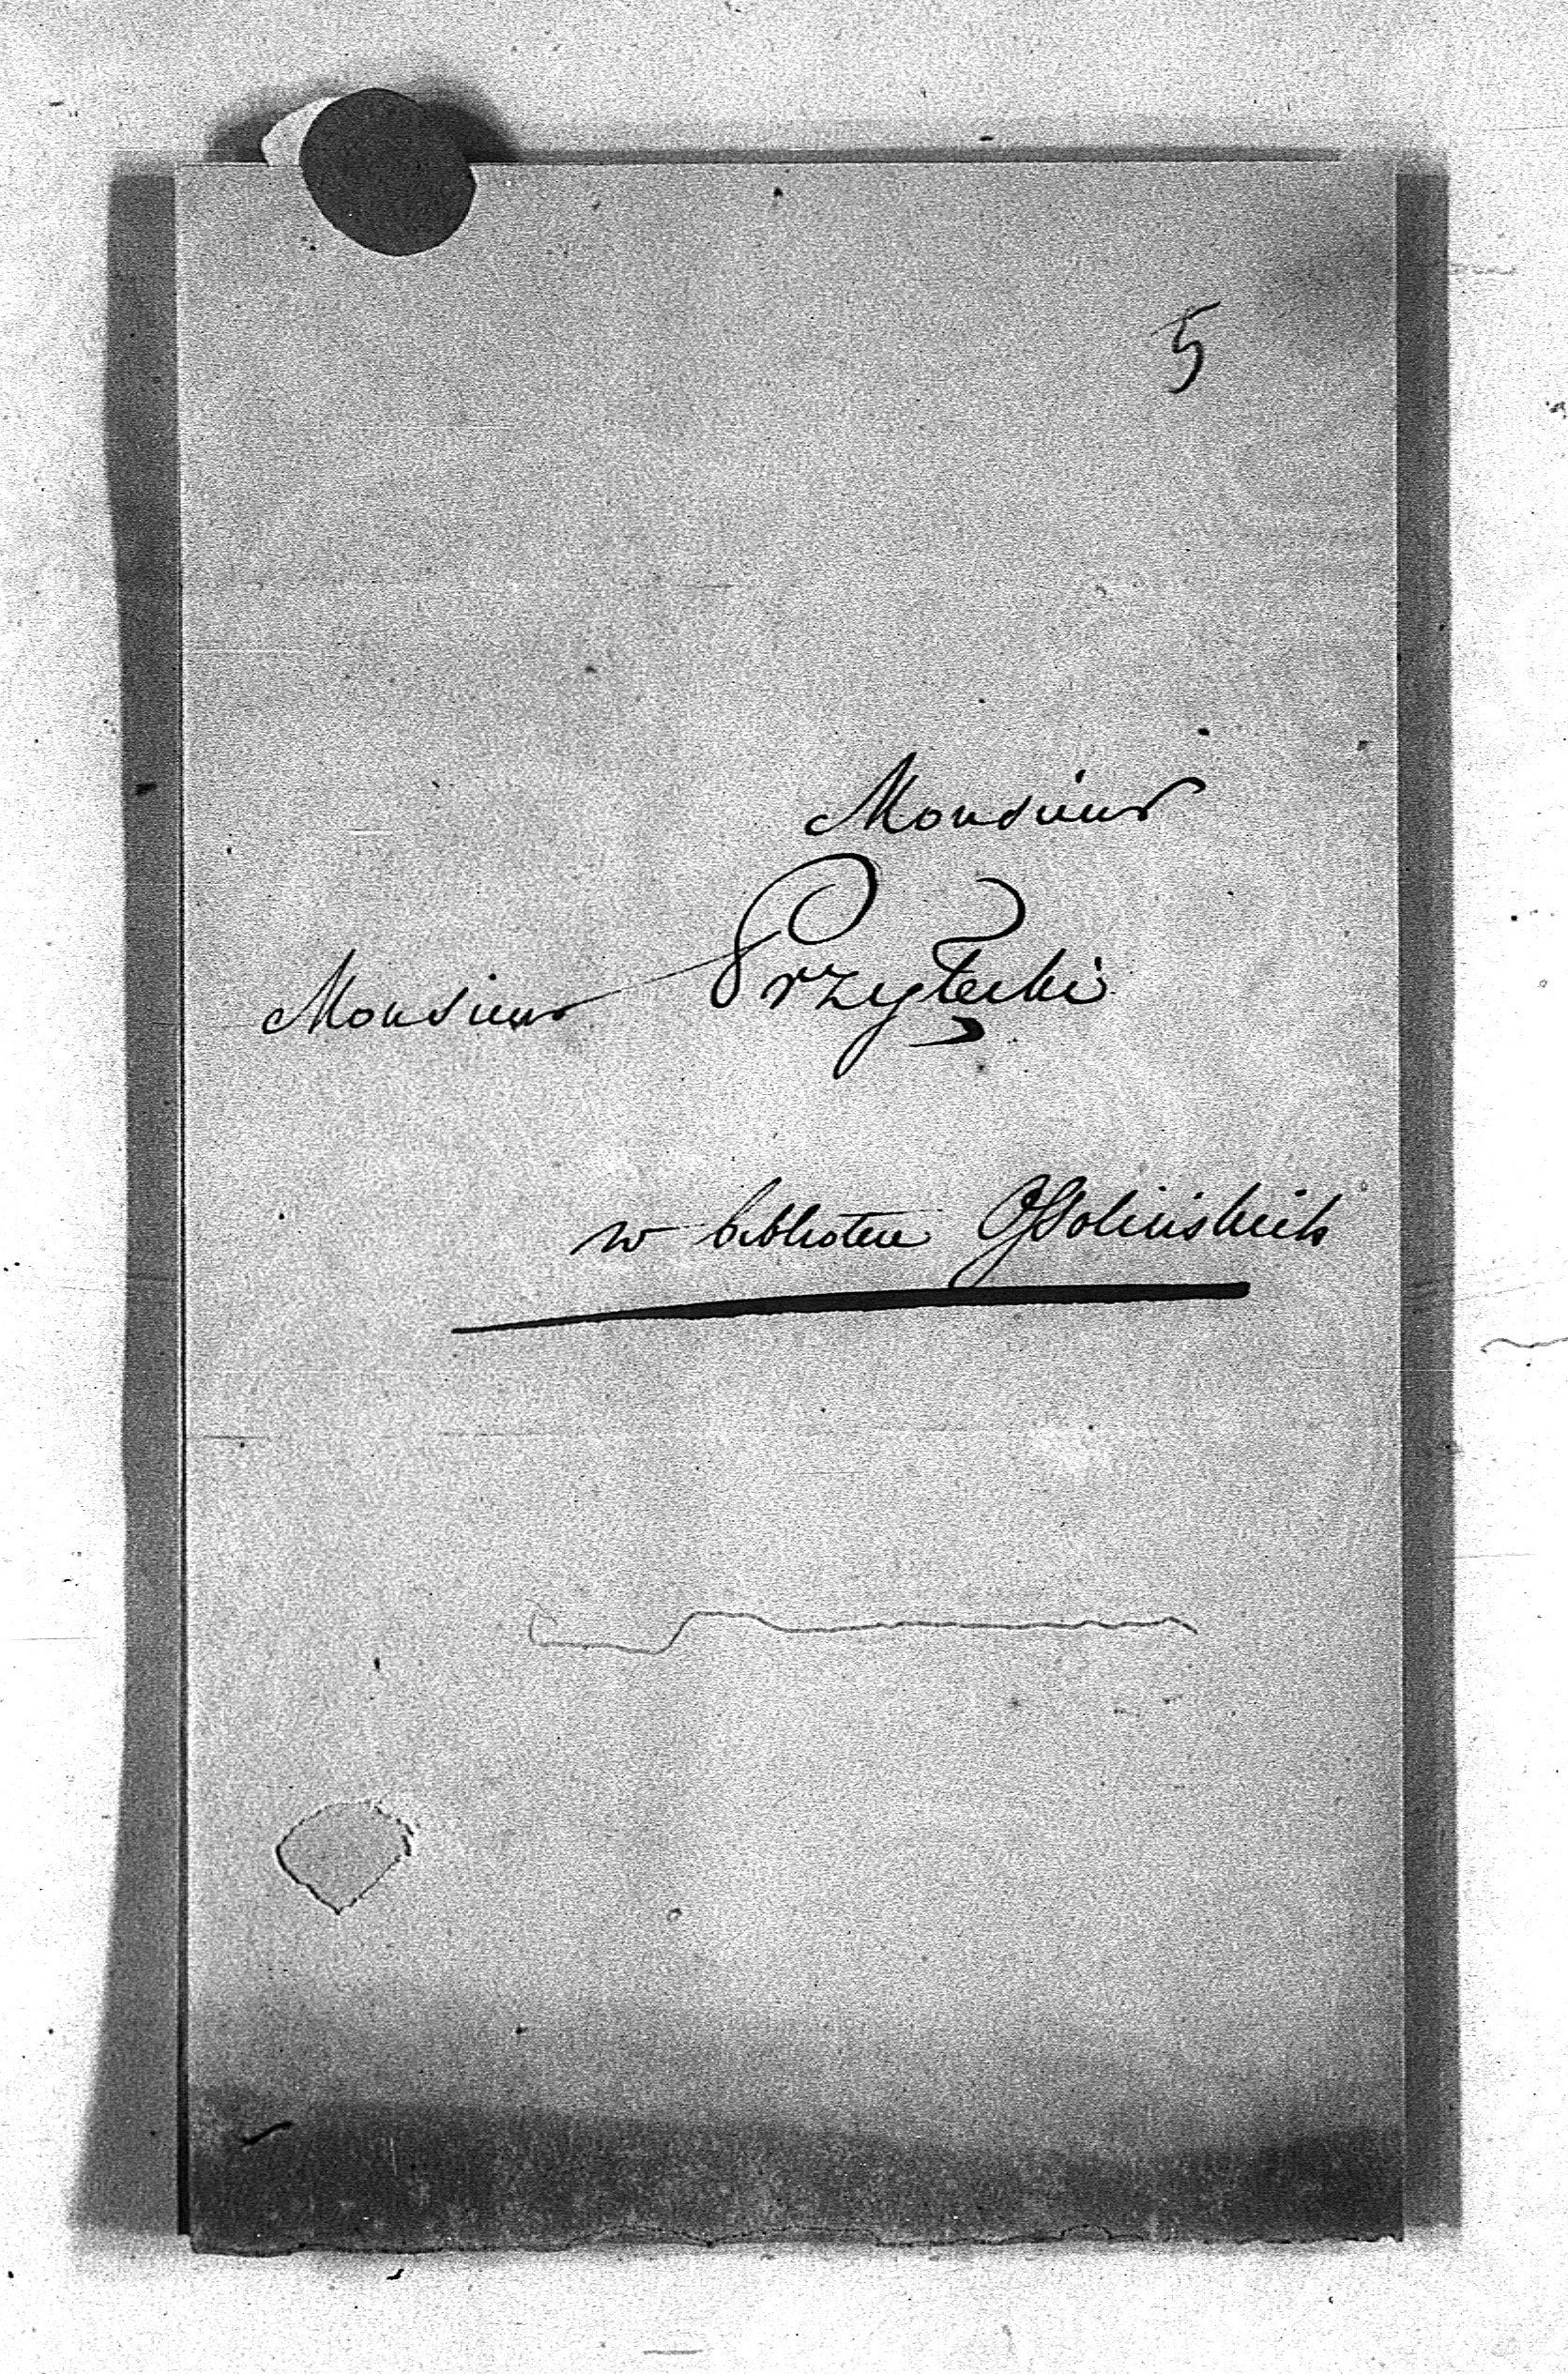 5
Monsieur
Monsieur Przyłęcki
w bibliotece Ossolińskich